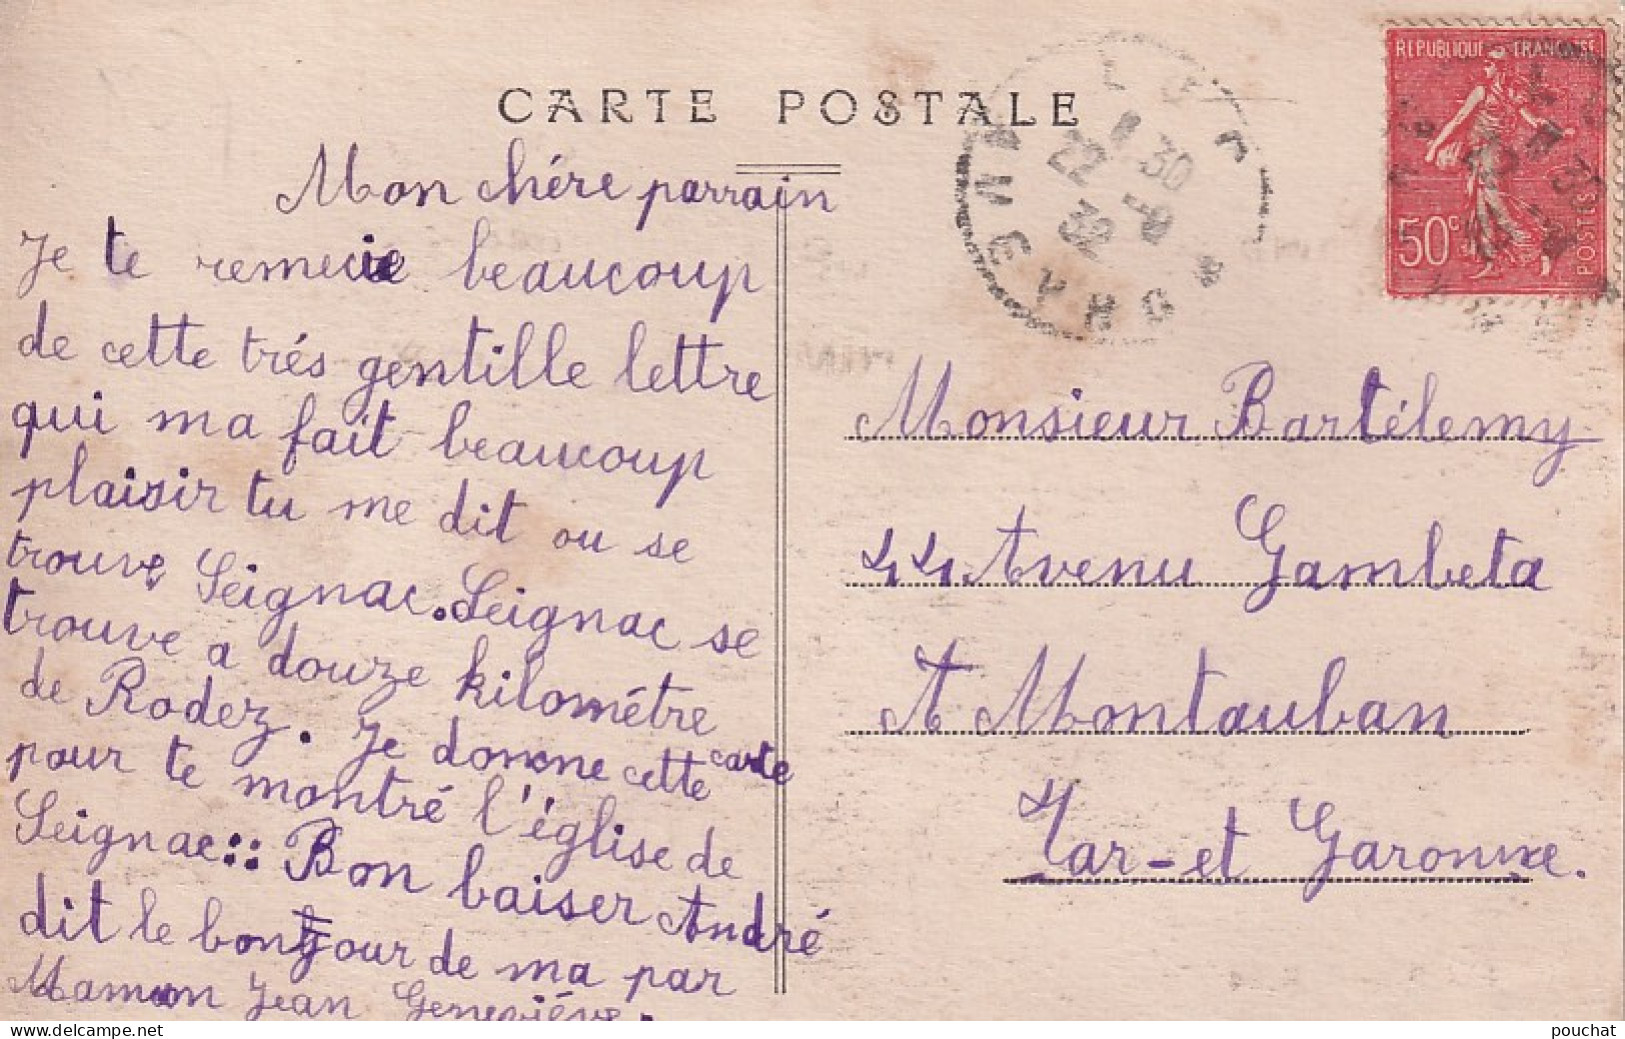 CARTE POSTALE
REPUBLIQUE FRANÇAISE
50c
POSTES
Mon chére parrain
Je te remecie beaucoup
de cette trés gentille lettre
qui ma fait beaucoup
plaisir tu me dit ou se
trouve Seignac. Seignac se
trouve a douze kilométre
de Rodez. Je donne cette carte
pour te montré l'église de
Seignac:: Bon baiser André
dit le bonjour de ma par
Maman Jean Geneviéve.
Monsieur Bartélemy
44 Avenu Gambeta
A Montauban
Tar-et Garonne.
LUC
18 30
22 -8
32
AVEYRON
pouchat